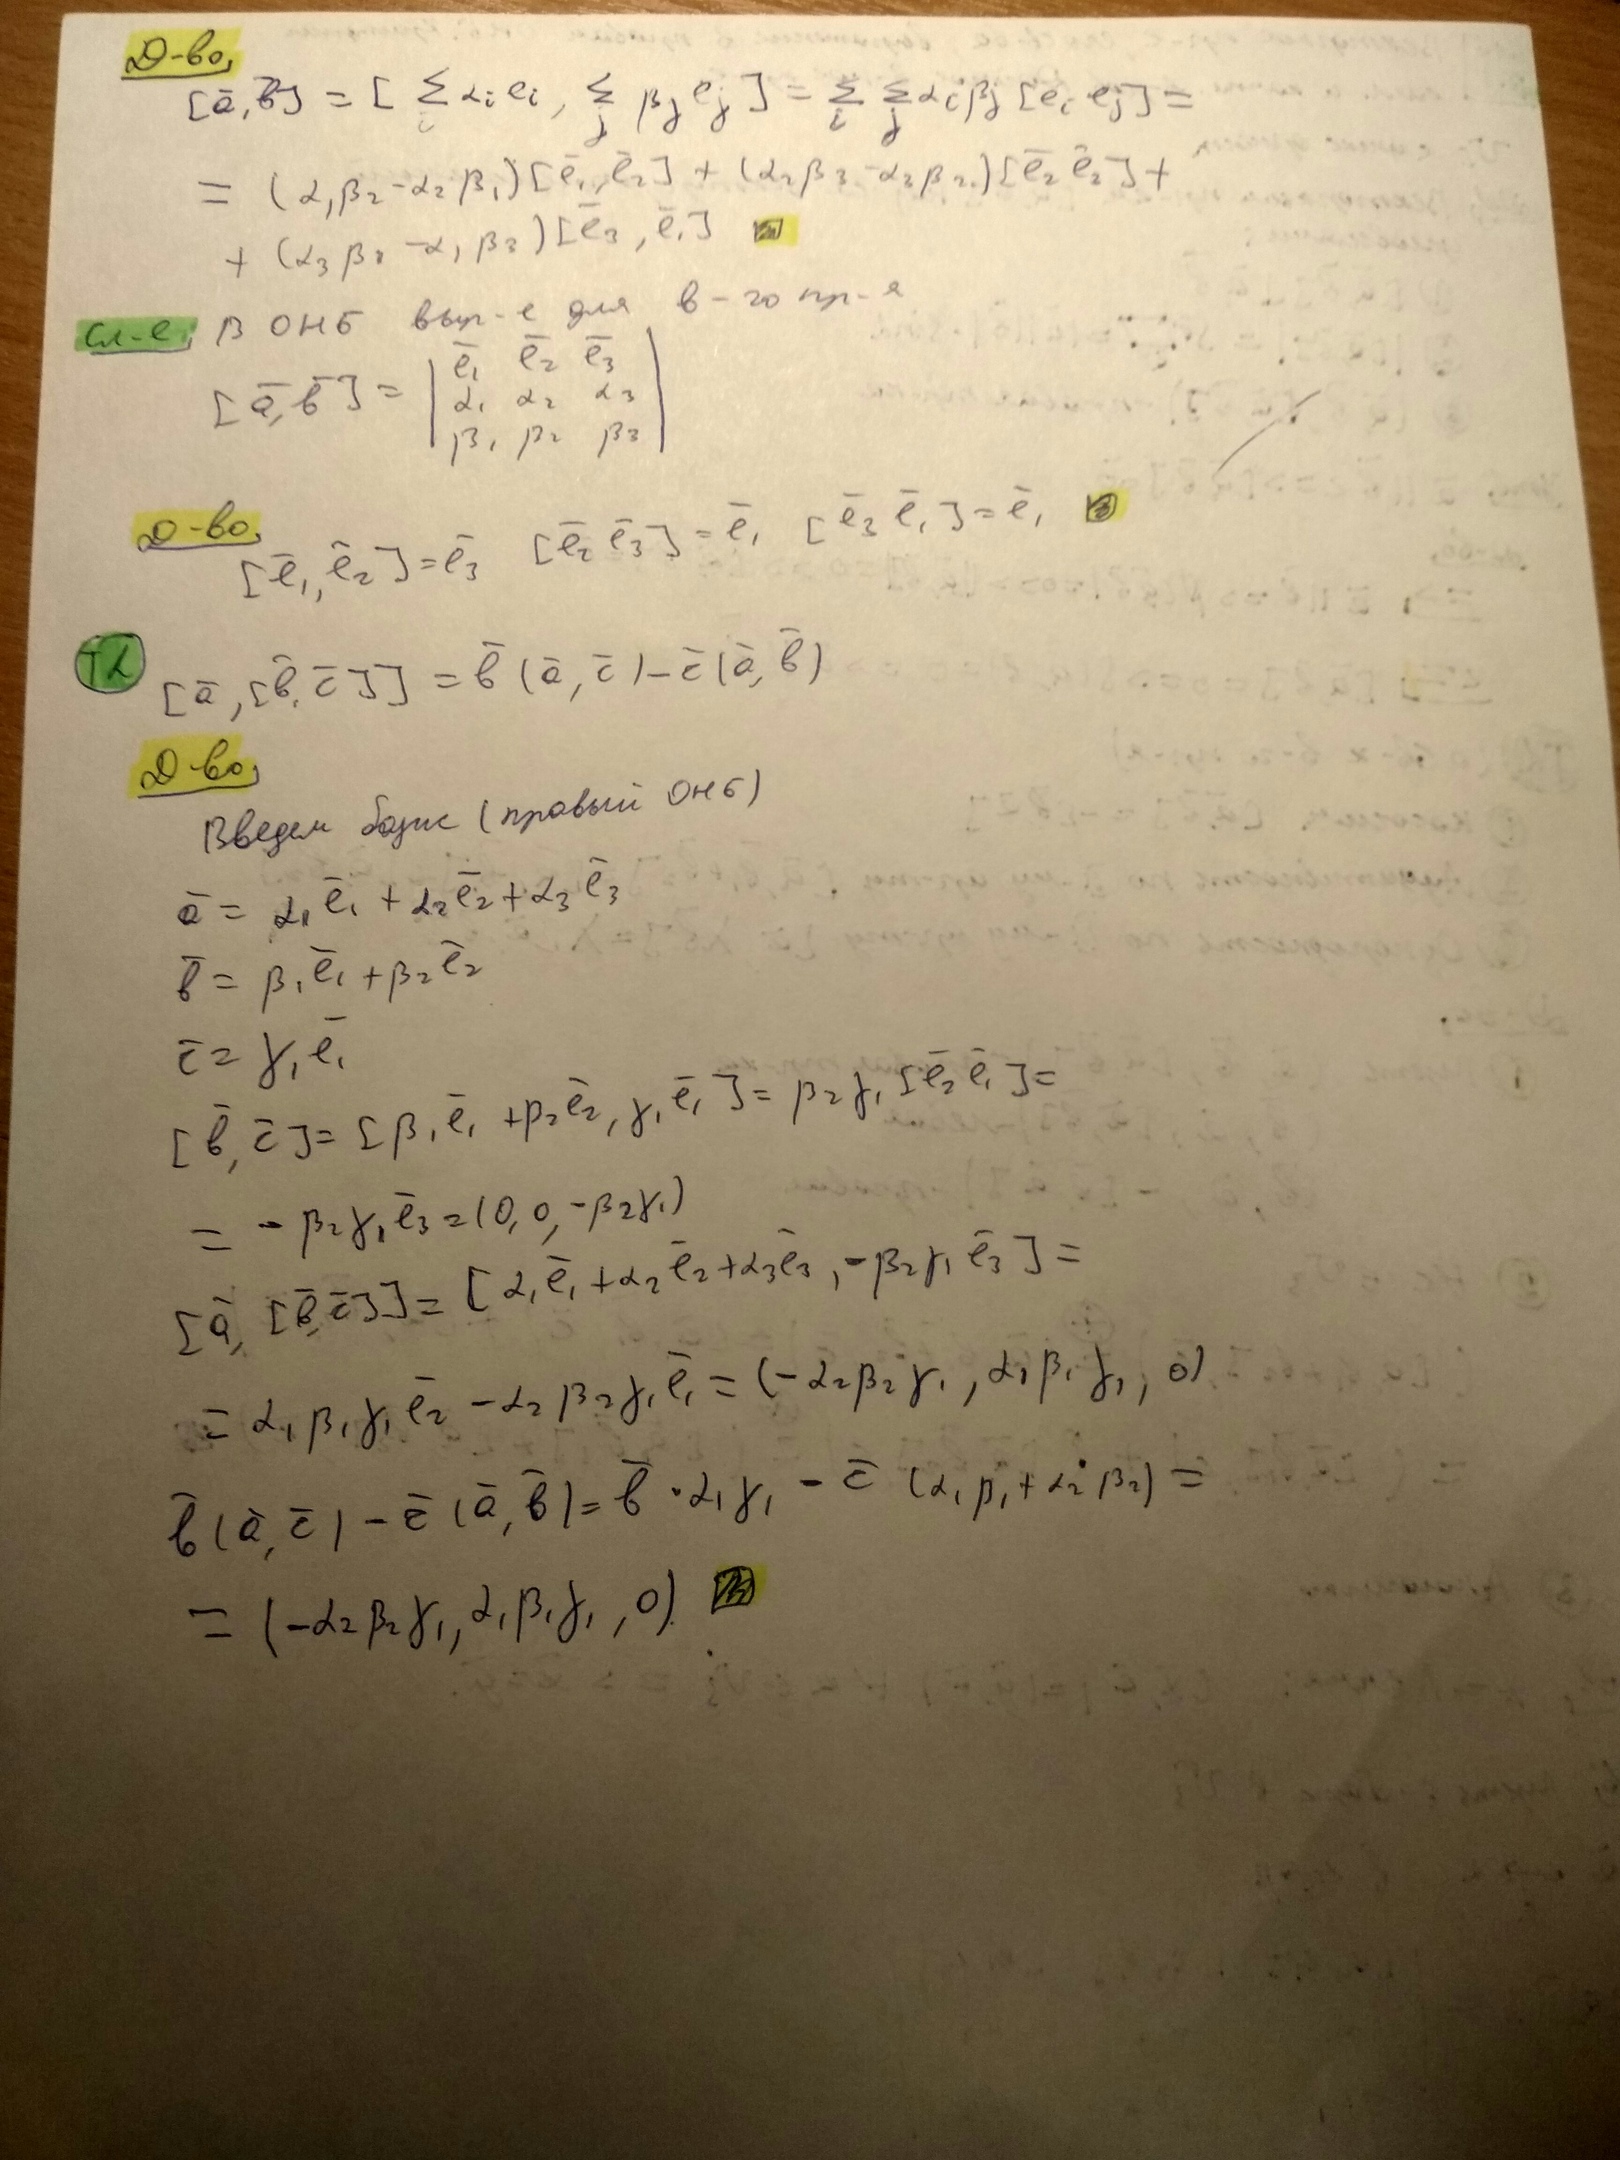 Д-во,
[ā, b̄] = [ Σᵢ αᵢ eᵢ , Σⱼ βⱼ eⱼ ] = Σᵢ Σⱼ αᵢ βⱼ [eᵢ eⱼ] =
= (α₁β₂ - α₂β₁)[ē₁, ē₂] + (α₂β₃ - α₃β₂)[ē₂ ē₂] +
+ (α₃β₁ - α₁β₃)[ē₃, ē₁]
Сл-е, В ОНБ выр-е для в-го пр-я
[ā, b̄] = | ē₁ ē₂ ē₃
α₁ α₂ α₃
β₁ β₂ β₃ |
Д-во,
[ē₁, ē₂] = ē₃ [ē₂ ē₃] = ē₁ [ē₃ ē₁] = ē₁
[ā, [b̄, c̄]] = b̄ (ā, c̄) - c̄ (ā, b̄)
Д-во,
Введем базис (правый ОНБ)
ā = α₁ē₁ + α₂ē₂ + α₃ē₃
b̄ = β₁ē₁ + β₂ē₂
c̄ = γ₁ē₁
[b̄, c̄] = [β₁ē₁ + β₂ē₂, γ₁ē₁] = β₂γ₁ [ē₂ ē₁] =
= - β₂γ₁ē₃ = (0, 0, -β₂γ₁)
[ā, [b̄, c̄]] = [α₁ē₁ + α₂ē₂ + α₃ē₃, -β₂γ₁ē₃] =
= α₁β₁γ₁ē₂ - α₂β₂γ₁ē₁ = (-α₂β₂γ₁, α₁β₁γ₁, 0)
b̄ (ā, c̄) - c̄ (ā, b̄) = b̄ · α₁γ₁ - c̄ (α₁β₁ + α₂β₂) =
= (-α₂β₂γ₁, α₁β₁γ₁, 0).